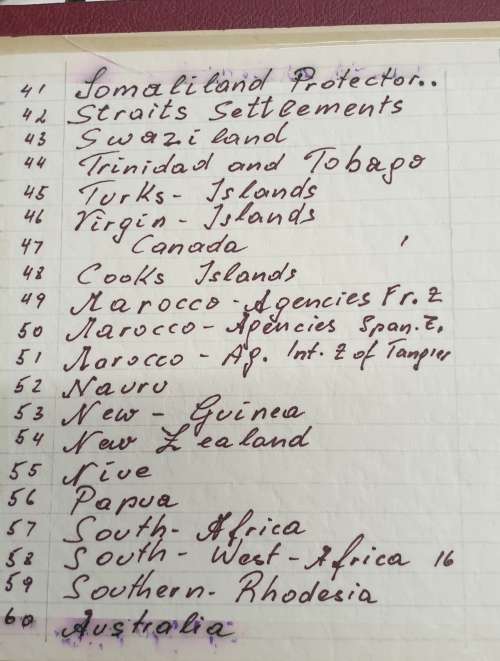 41 Somaliland Protector..
42 Straits Settlements
43 Swaziland
44 Trinidad and Tobago
45 Turks-Islands
46 Virgin-Islands
47 Canada
48 Cooks Islands
49 Marocco-Agencies Fr. Z
50 Marocco-Agencies Span. Z.
51 Marocco-Ag. Int. Z of Tangier
52 Nauru
53 New-Guinea
54 New Zealand
55 Nive
56 Papua
57 South-Africa
58 South-West-Africa 16
59 Southern-Rhodesia
60 Australia